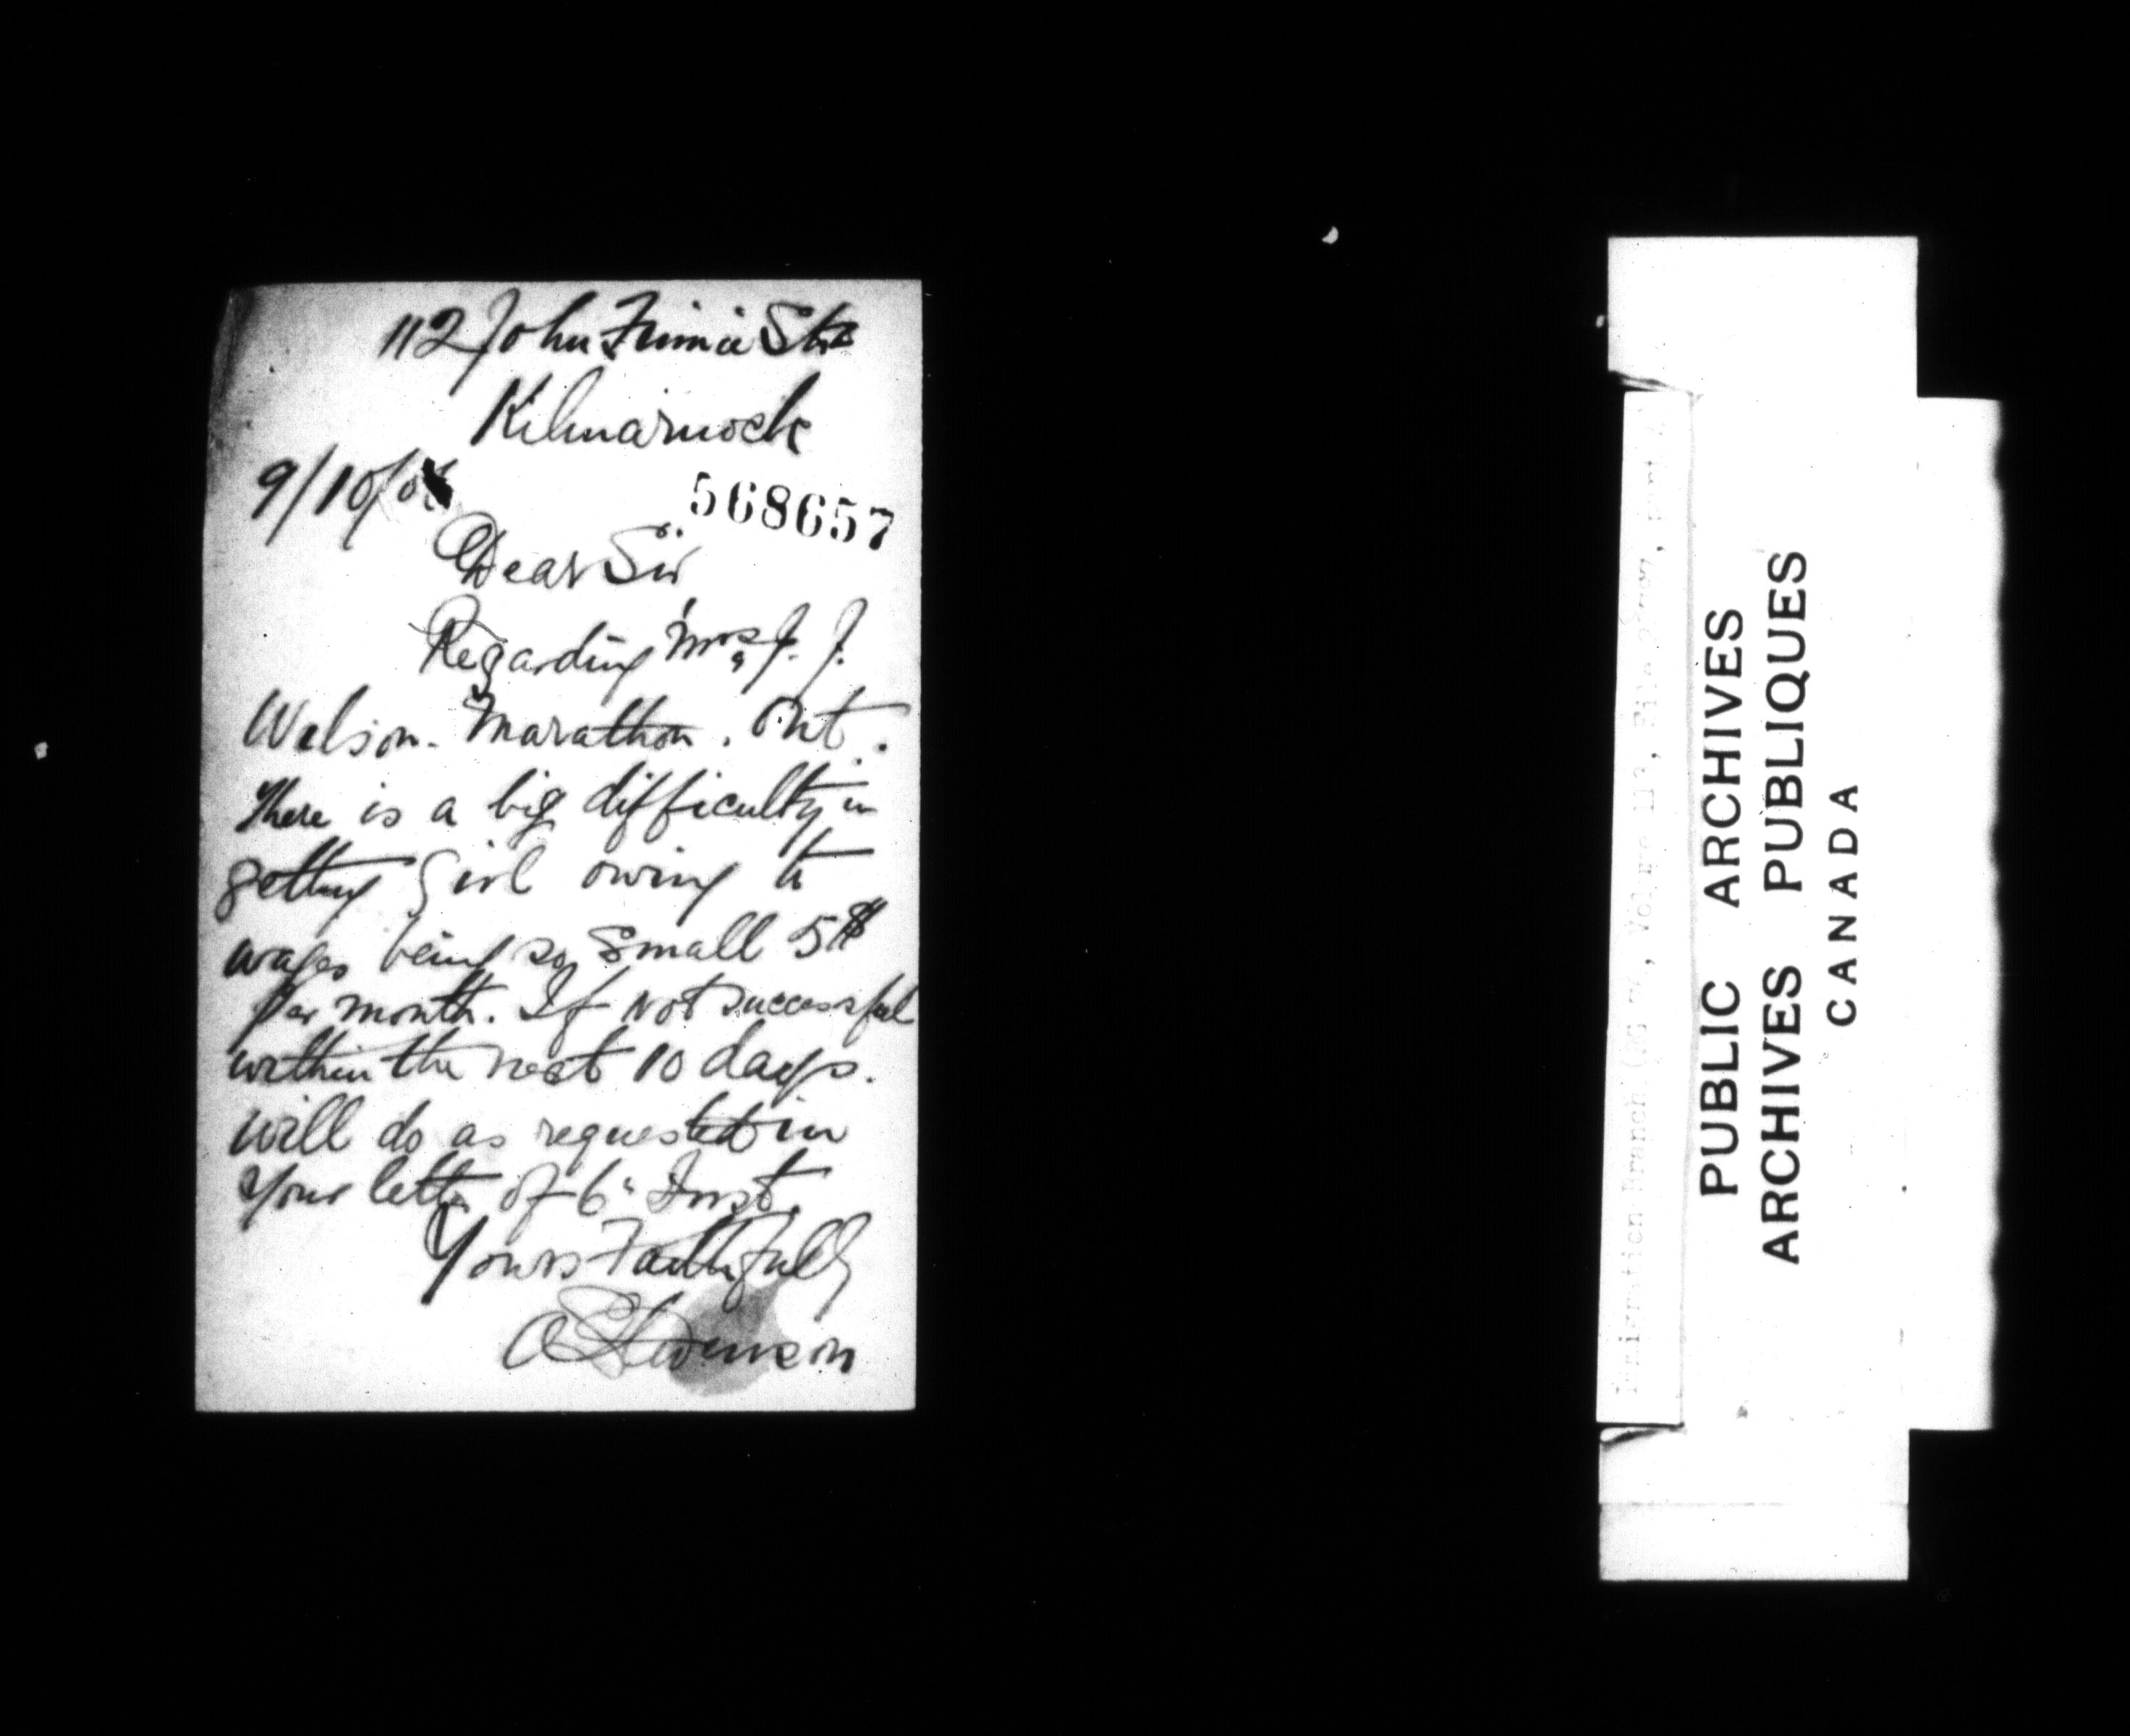 112 John Finnie Str
Kilmarnock
9/10/0
568657
Dear Sir
Regarding Mrs J. J.
Welson. Marathon. Ont.
There is a big difficulty in
getting Girl owing to
wages being so small 5$
per month. If not successful
within the next 10 days.
will do as requested in
your letter of 6" Inst.
Yours Faithfully
A Stevenson
Immigration Branch (RG 76, Volume 113, File
PUBLIC ARCHIVES
ARCHIVES PUBLIQUES
CANADA